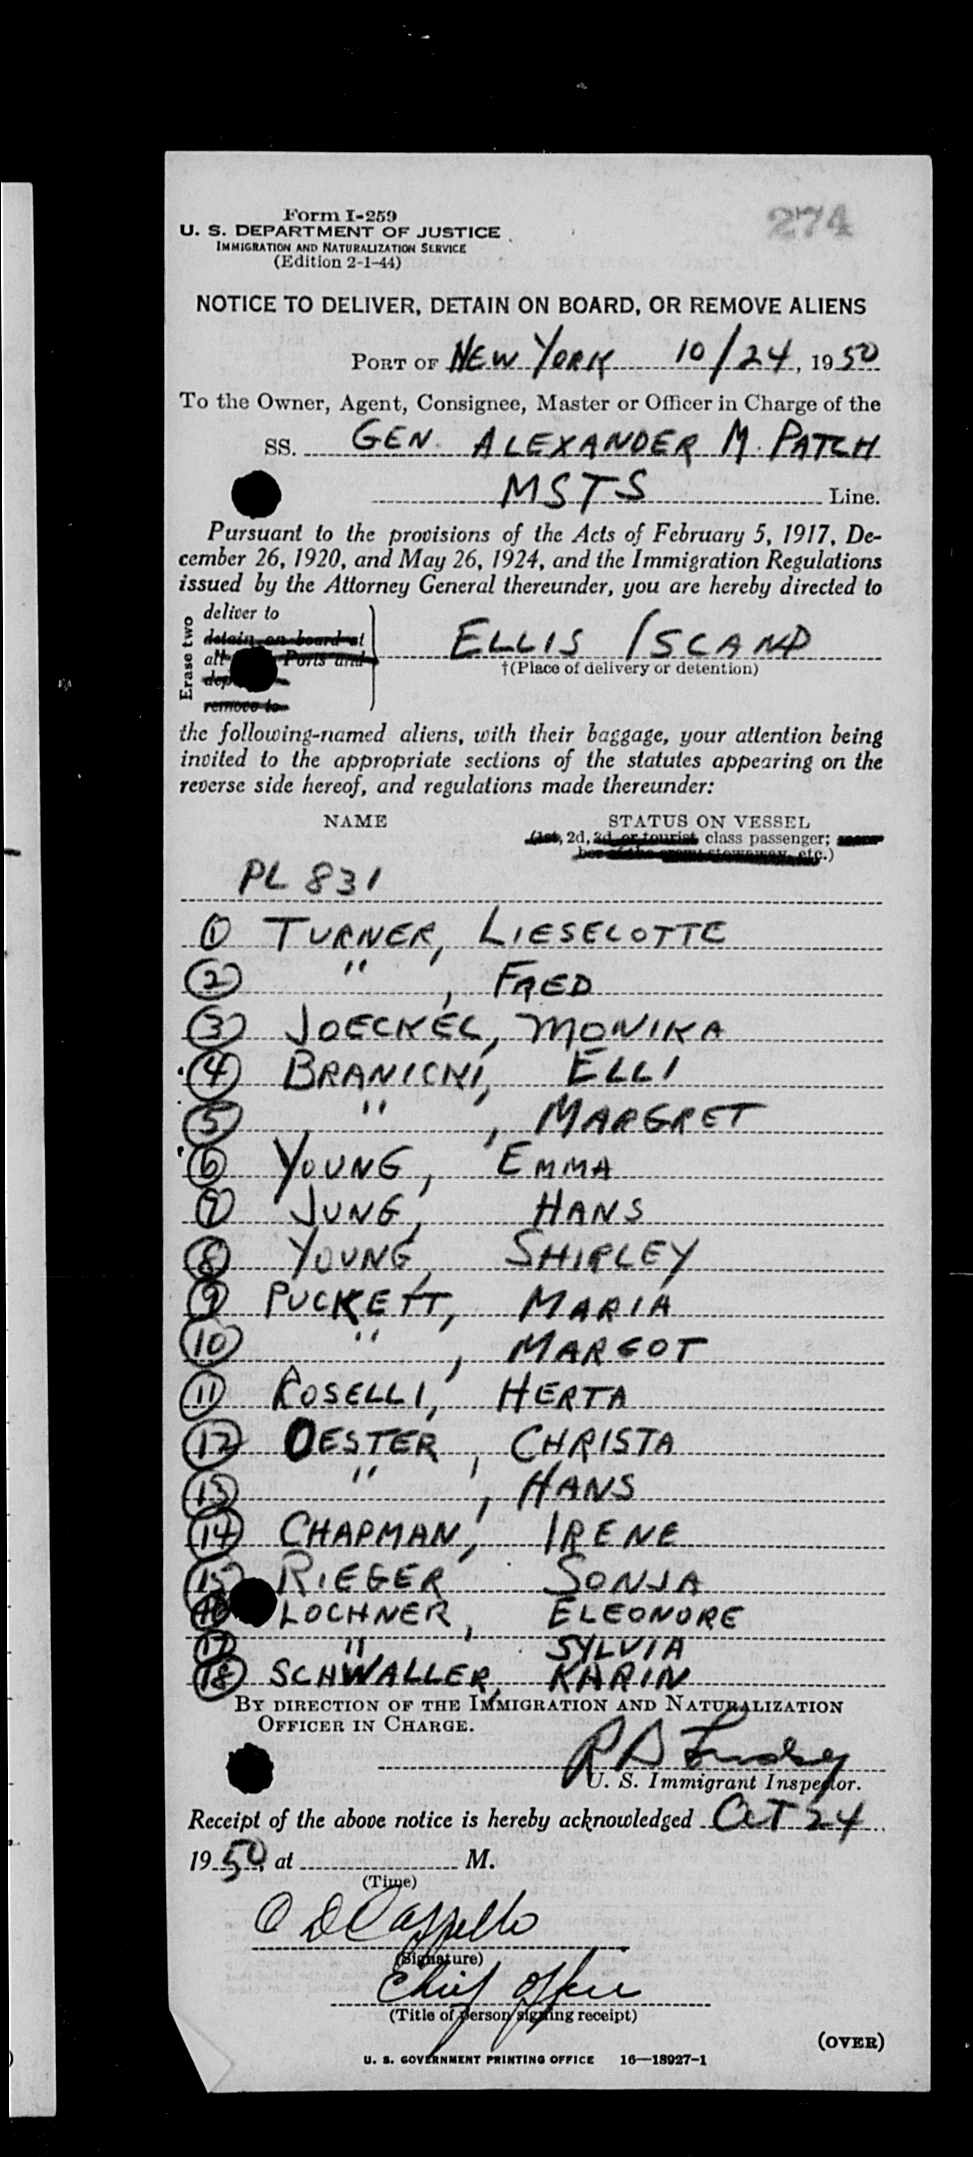 274
Form I-259
U. S. DEPARTMENT OF JUSTICE
IMMIGRATION AND NATURALIZATION SERVICE
(Edition 2-1-44)
NOTICE TO DELIVER, DETAIN ON BOARD, OR REMOVE ALIENS
PORT OF NEW YORK 10/24, 1950
To the Owner, Agent, Consignee, Master or Officer in Charge of the
SS. GEN. ALEXANDER M. PATCH
MSTS Line.
Pursuant to the provisions of the Acts of February 5, 1917, De-
cember 26, 1920, and May 26, 1924, and the Immigration Regulations
issued by the Attorney General thereunder, you are hereby directed to
Erase two
deliver to
detain on board at
all Ports and
remove to
ELLIS ISLAND
†(Place of delivery or detention)
the following-named aliens, with their baggage, your attention being
invited to the appropriate sections of the statutes appearing on the
reverse side hereof, and regulations made thereunder:
NAME STATUS ON VESSEL
(1st, 2d, 3d or tourist class passenger;
ber of the crew, stowaway, etc.)
PL 831
1 TURNER, LIESELOTTE
2 " , FRED
3 JOECKEL, MONIKA
4 BRANICKI, ELLI
5 " , MARGRET
6 YOUNG, EMMA
7 JUNG, HANS
8 YOUNG, SHIRLEY
9 PUCKETT, MARIA
10 " , MARGOT
11 ROSELLI, HERTA
12 OESTER, CHRISTA
13 " , HANS
14 CHAPMAN, IRENE
15 RIEGER SONJA
16 LOCHNER, ELEONORE
17 " SYLVIA
18 SCHWALLER, KARIN
BY DIRECTION OF THE IMMIGRATION AND NATURALIZATION
OFFICER IN CHARGE.
U. S. Immigrant Inspector.
Receipt of the above notice is hereby acknowledged OCT 24
1950, at M.
(Time)
(Signature)
Chief Officer
(Title of person signing receipt)
(OVER)
U. S. GOVERNMENT PRINTING OFFICE 16—18927-1